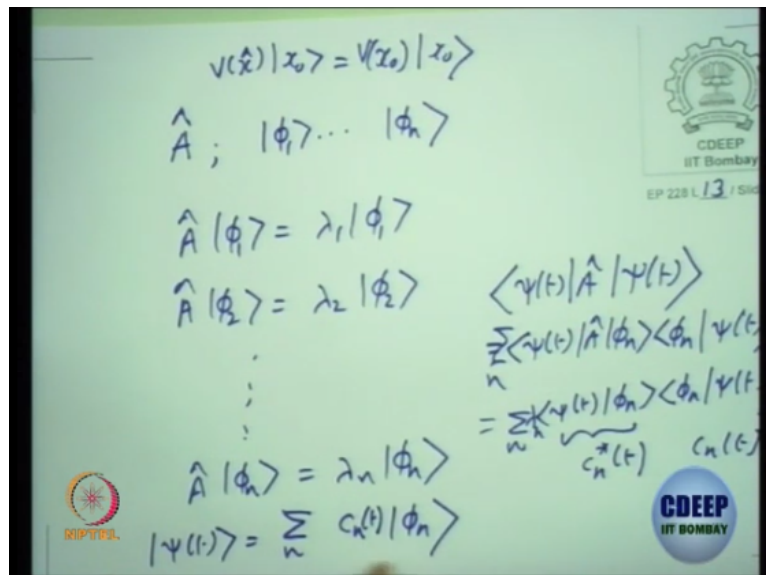 V(x̂)|x₀> = V(x₀)|x₀>
Â ; |ϕ₁> ... |ϕₙ>
Â|ϕ₁> = λ₁|ϕ₁>
Â|ϕ₂> = λ₂|ϕ₂>
Â|ϕₙ> = λₙ|ϕₙ>
|ψ(t)> = Σₙ cₙ(t)|ϕₙ>
<ψ(t)|Â|ψ(t)>
Σₙ <ψ(t)|Â|ϕₙ><ϕₙ|ψ(t)
= Σₙ λₙ <ψ(t)|ϕₙ><ϕₙ|ψ(t)
cₙ*(t) cₙ(t)
CDEEP
IIT Bombay
EP 228 L 13 / Slid
NPTEL
CDEEP
IIT BOMBAY